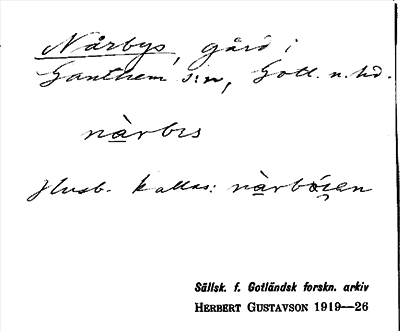 Nårbys, gård i
Ganthem s:n, Gotl. n. hd.
nàrbıs
Husb. kallas: nàrbóien
Sällsk. f. Gotländsk forskn. arkiv
HERBERT GUSTAVSON 1919—26